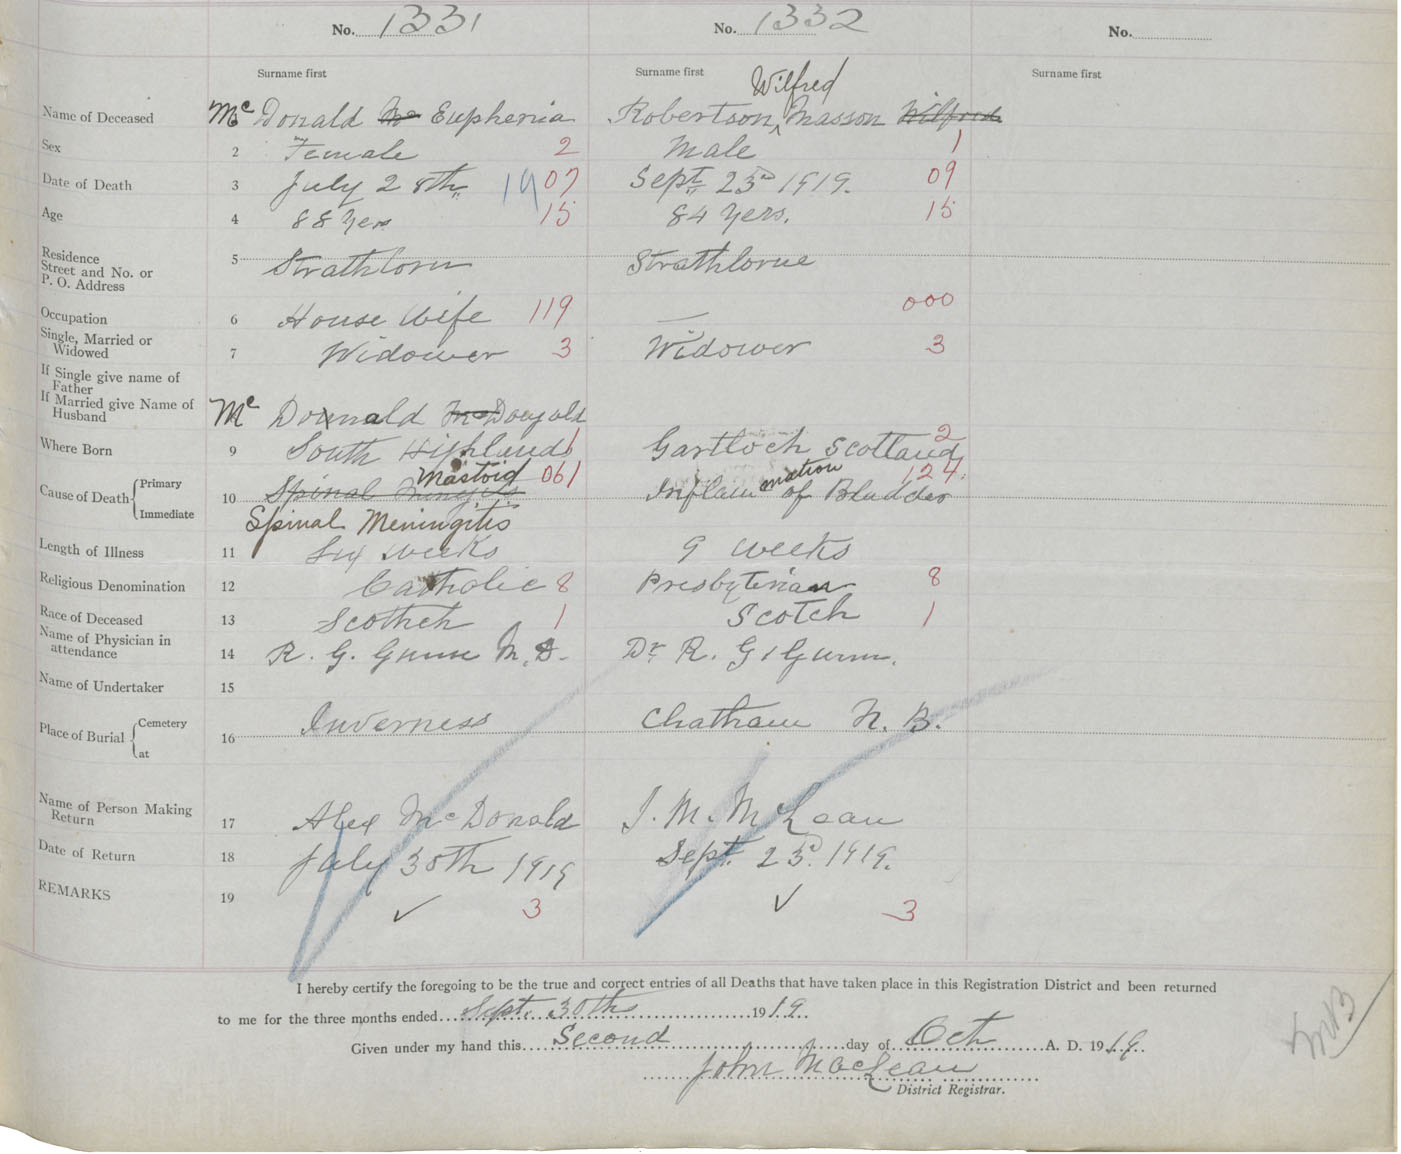 No. 1331 No. 1332 No.
Surname first Surname first Surname first
Wilfred
Name of Deceased Mc Donald Mc Euphenia Robertson, Masson Wilfred
Sex 2 Female 2 Male 1
Date of Death 3 July 28th 19 07 Sept. 23d 1919. 09
Age 4 88 Yers 15 84 Yers. 15
Residence
Street and No. or 5 Strathlorn Strathlorne
P. O. Address
Occupation 6 House Wife 119 — 000
Single, Married or
Widowed 7 Widower 3 Widower 3
If Single give name of
Father
If Married give Name of
Husband Mc Donnald Mc Dougald
Where Born 9 South Highlands 1 Gartloch Scotland 2
Mastoid 061 mation 124
Cause of Death Primary
10 Spinal Inflam of Bladder
Immediate Spinal Meningitis
Length of Illness 11 Six weeks 9 weeks
Religious Denomination 12 Catholic 8 Presbyterian 8
Race of Deceased 13 Scothch 1 Scotch 1
Name of Physician in
attendance 14 R. G. Gunn M. D. Dr. R. G. Gunn.
Name of Undertaker 15
Place of Burial Cemetery
16 Inverness Chatham N. B.
at
Name of Person Making
Return 17 Alex McDonald J. M. McLean
Date of Return 18 July 30th 1919 Sept. 23d. 1919.
REMARKS 19 ✓ 3 ✓ 3
I hereby certify the foregoing to be the true and correct entries of all Deaths that have taken place in this Registration District and been returned
to me for the three months ended Sept. 30th 1919.
Given under my hand this Second day of Oct A. D. 1919.
John MacLean
District Registrar.